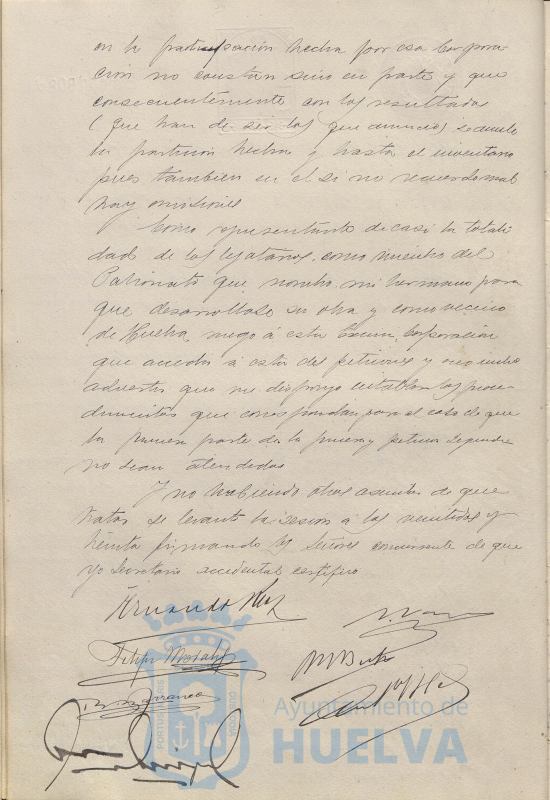 en la participación hecha por esa Corpora-
ción no constan sino en parte y que
consecuentemente con los resultados
(que han de ser los que anuncio) se anule
la partición hecha y hasta el inventario
pues tambien en el si no recuerdo mal
hay omisiones
Como representante de casi la totali-
dad de los legatarios, como miembro del
Patronato que nombro mi hermano para
que desarrollase su obra y como vecino
de Huelva ruego á esta Excma. Corporación
que acceda á estas dos peticiones y
advertir que me dispongo entablar los proce-
dimientos que correspondan para el caso de que
la primera parte de la primera peticion y la segunda
no sean atendidas
Y no habiendo otros asuntos de que
tratar se levantó la sesion á las veintidos y
treinta firmando los Señores concurrentes de que
yo Secretario accidental certifico
Fernando
Felipe Morales
Ayuntamiento de
HUELVA